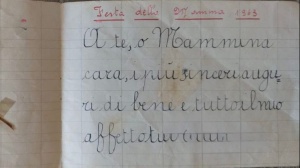 Festa della Mamma 1963
A te, o Mammina
cara, i più sinceri augu
ri di bene e tutto il mio
affetto tuo